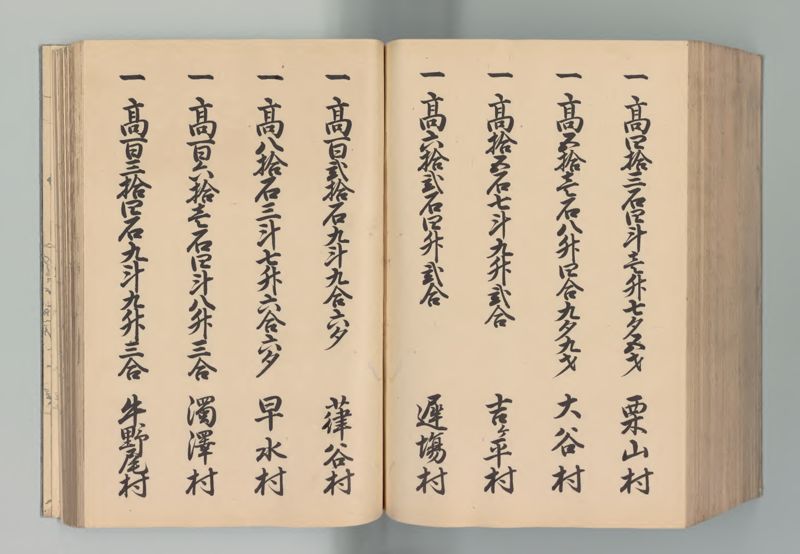 一 高四拾三石四斗壱升七夕五才 栗山村
一 高五拾壱石八升四合九夕九才 大谷村
一 高拾五石七斗九升弐合 吉ヶ平村
一 高六拾弐石四升弐合 遅場村
一 高百弐拾石九斗九合六夕 葎谷村
一 高八拾石三斗七升六合六夕 早水村
一 高百六拾壱石四斗八升三合 濁澤村
一 高百三拾四石九斗九升三合 牛野尾村